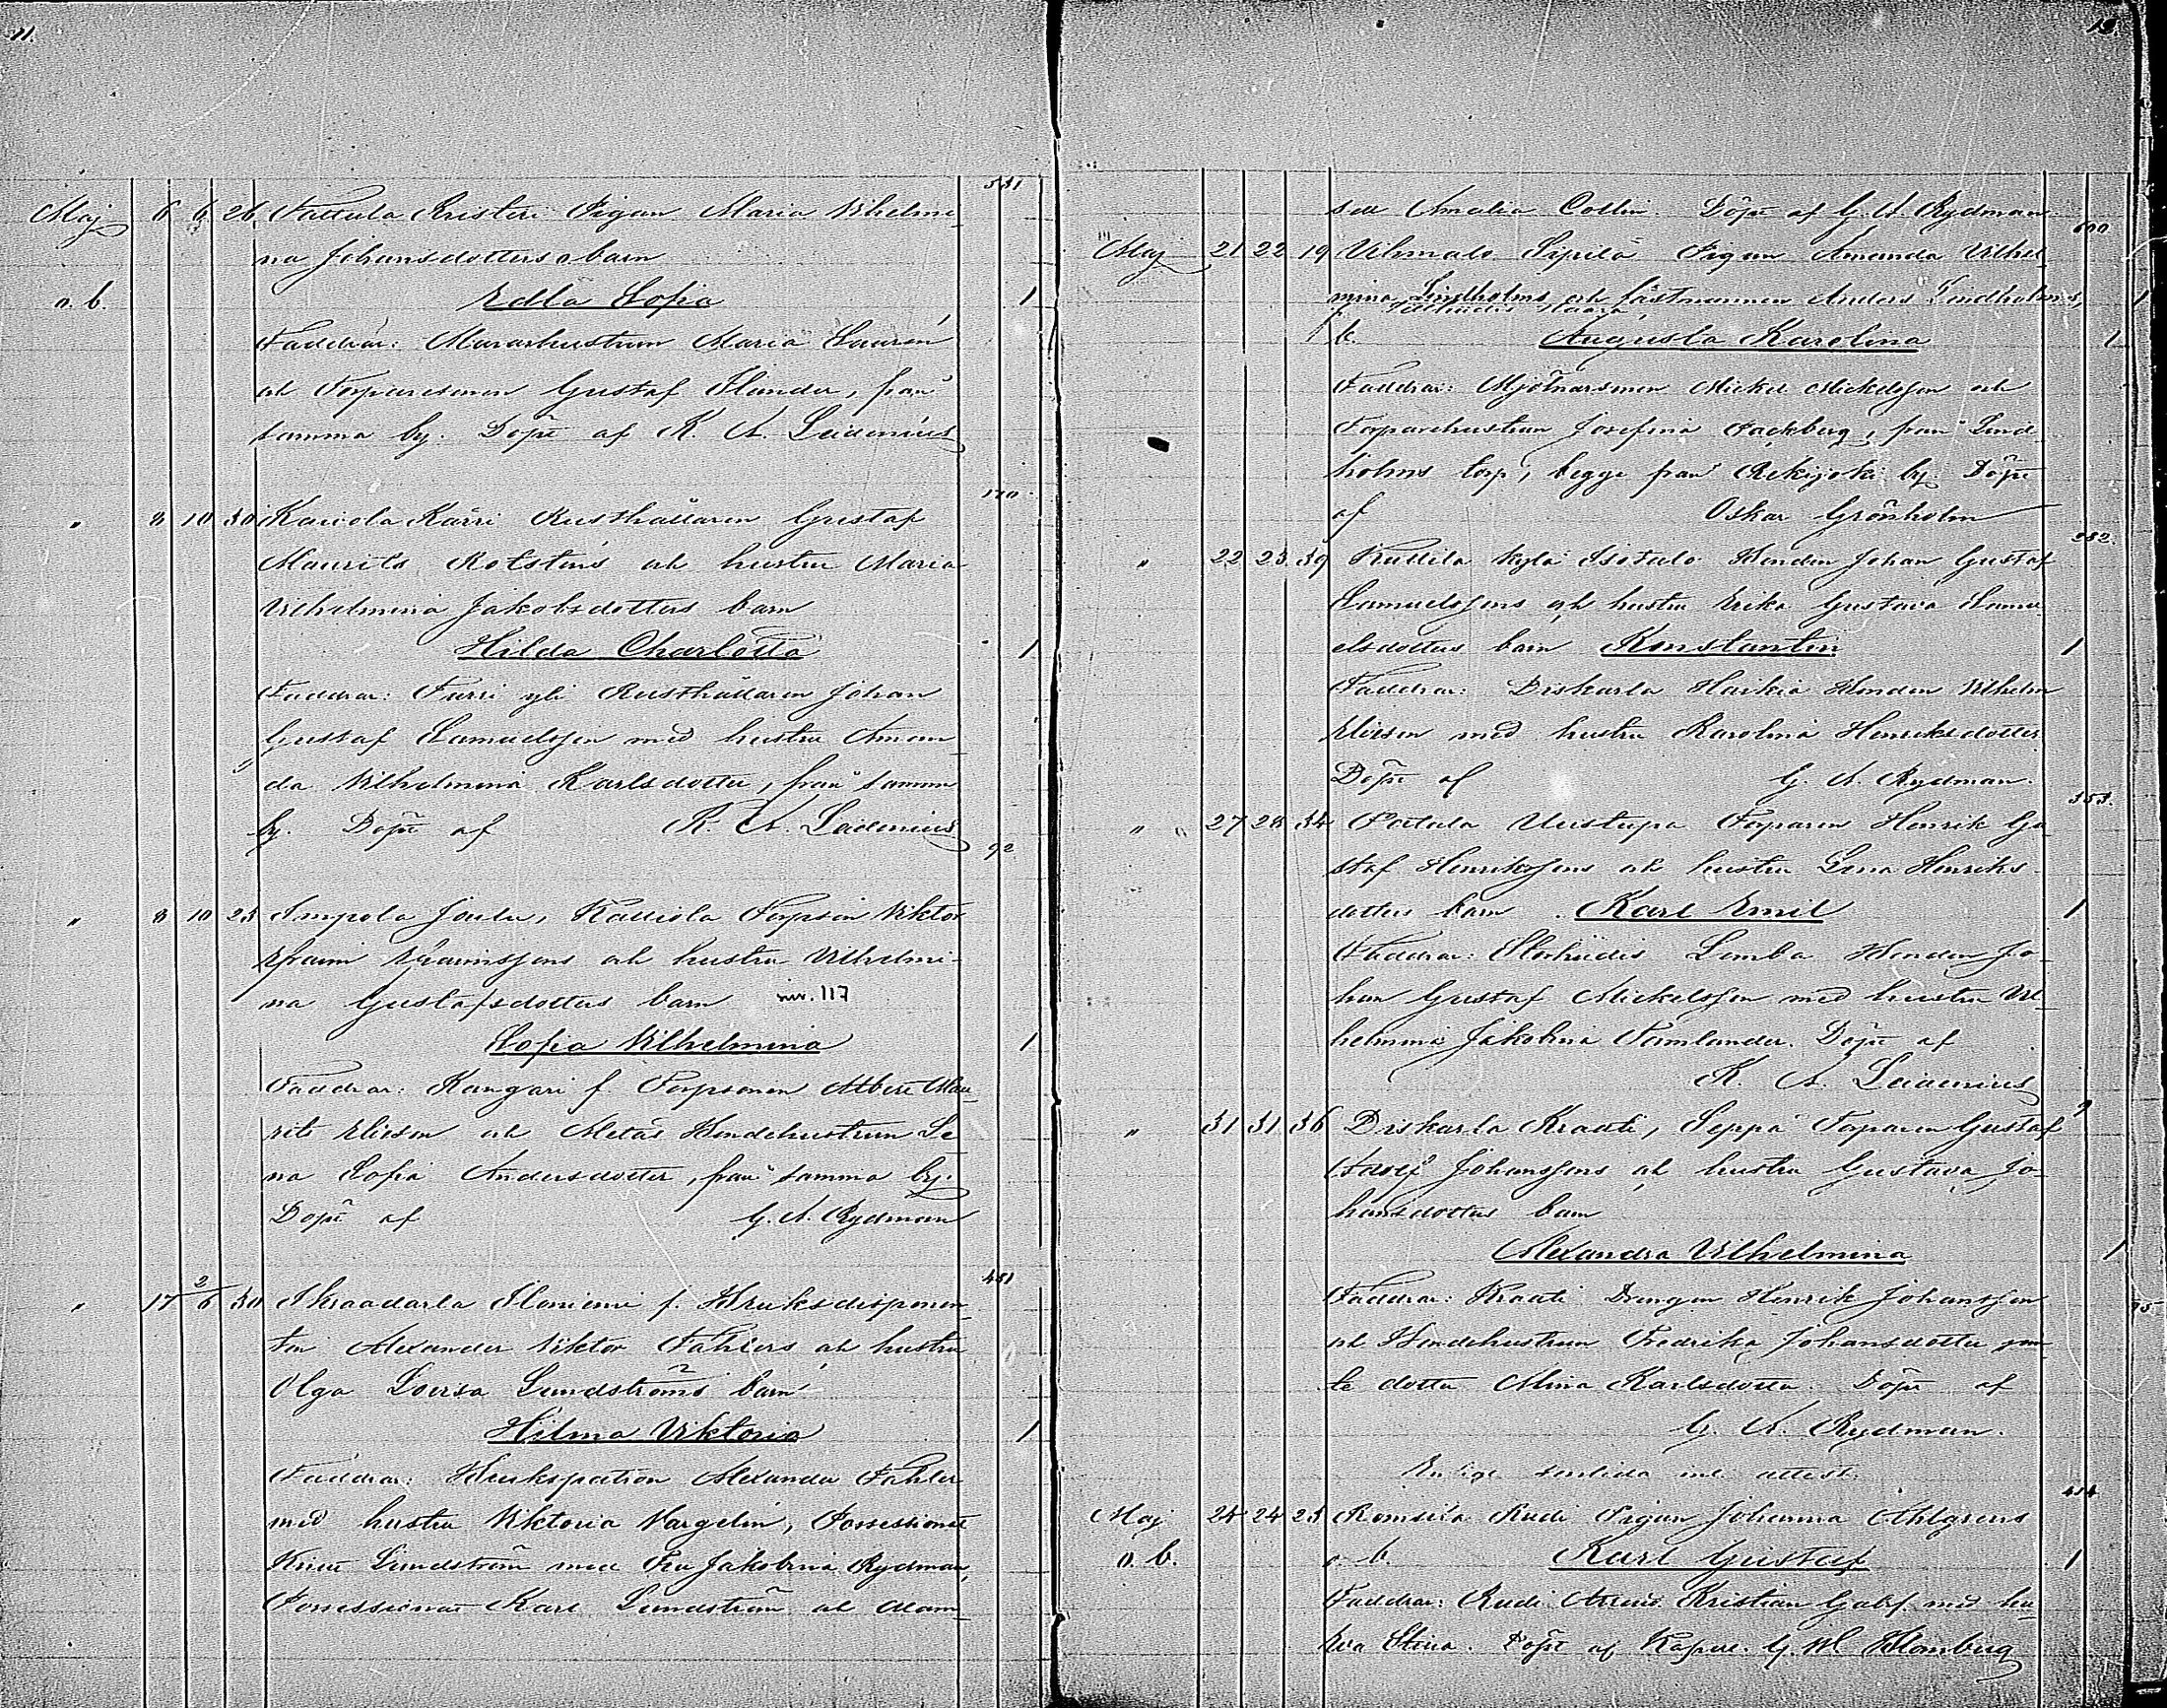 11.
331
Maj 6 6 26 Pattula Kristeri Pigan Maria Vilhelmi-
na Johansdotters o barn
o. b. Edla Sofia 1
Faddrar: Murarhustrun Maria Laurén
och Torparesonen Gustaf Flander, från
samma by. Döpt af K. A. Leidenius
170
" 8 10 30 Kaivola Kärri Rusthållaren Gustaf
Maurits Rotsténs och hustru Maria
Vilhelmina Jakobsdotters barn
Hilda Charlotta 1
Faddrar: Furri yli Rusthållaren Johan
Gustaf Samuelsson med hustru Aman-
da Vilhelmina Karlsdotter, från samma
by. Döpt af K. A. Leidenius
92
" 8 10 23 Ampola Joula, Kalliola Torp Viktor
Efraim Efraimssons och hustru Vilhelmi-
na Gustafsdotters barn siv. 117
Sofia Vilhelmina 1
Faddrar: Kangari f. Torpsonen Albert Mau-
rits Eliesson och Aletas Bondehustrun Le
na Sofia Andersdotter, från samma by.
Döpt af G. A. Rydman
451
" 17 2/6 30 Skraadarla Iloniemi f. Bruksdisponen-
ten Alexander Viktor Fahlers och hustru
Olga Lovisa Lundströms barn
Hilma Viktoria 1
Faddrar: Brukspatron Alexander Fahler
med hustru Viktoria Vargelin, Possessionat
Knut Lundström med Fru Jakobina Rydman,
Possessionat Karl Lundström och Mam-
12
sell Amalia Collin. Döpt af G. A. Rydman
600
Maj 21 22 19 Vihmalo Sipilä Pigan Amanda Vilhel-
mina Lindholms och fästmannen Anders Lindholms,
b. Augusta Karolina 1
Faddrar: Mjölnarsonen Mickel Mickelsson och
Torparehustrun Josefina Packberg, från Lind-
holms torp, begge från Rekijoki by. Döpt
af Oskar Grönholm
382.
" 22 23 39 Kultila kylä Isotalo Bonden Johan Gustaf
Samuelssons och hustru Erika Gustava Samu-
elsdotters barn Konstantin 1
Faddrar: Diskarla Haikia Bonden Vilhelm
Eliesson med hustru Karolina Henriksdotter
Döpt af G. A. Rydman.
353.
" 27 28 34 Pattula Uusitupa Torparen Henrik Gu-
staf Henrikssons och hustru Lena Henriks-
dotters barn. Karl Emil 1
Faddrar: Storhiidis Lemba Bonden Jo-
han Gustaf Mickelsson med hustru Vil-
helmina Jakobina Tamlander. Döpt af
K. A. Leidenius
9
" 31 31 36 Diskarla Krouti, Seppä Torparen Gustaf
Adolf Johanssons och hustru Gustava Jo-
hansdotters barn
Alexandra Vilhelmina 1
Faddrar: Krouti Drengen Henrik Johansson
och Bondehustrun Fredrika Johansdotter sam-
te dotter Mina Karlsdotter. Döpt af
G. A. Rydman.
Enligt senlida ink. attest.
414
Maj 24 24 23 Romsila Rudi Pigan Johanna Ahlgrens
o. b. o. b. Karl Gustaf 1
Faddrar: Rudi Kristian Gabf. med hu
Eva Stina. Döpt af Kapell. G. W. Blomberg